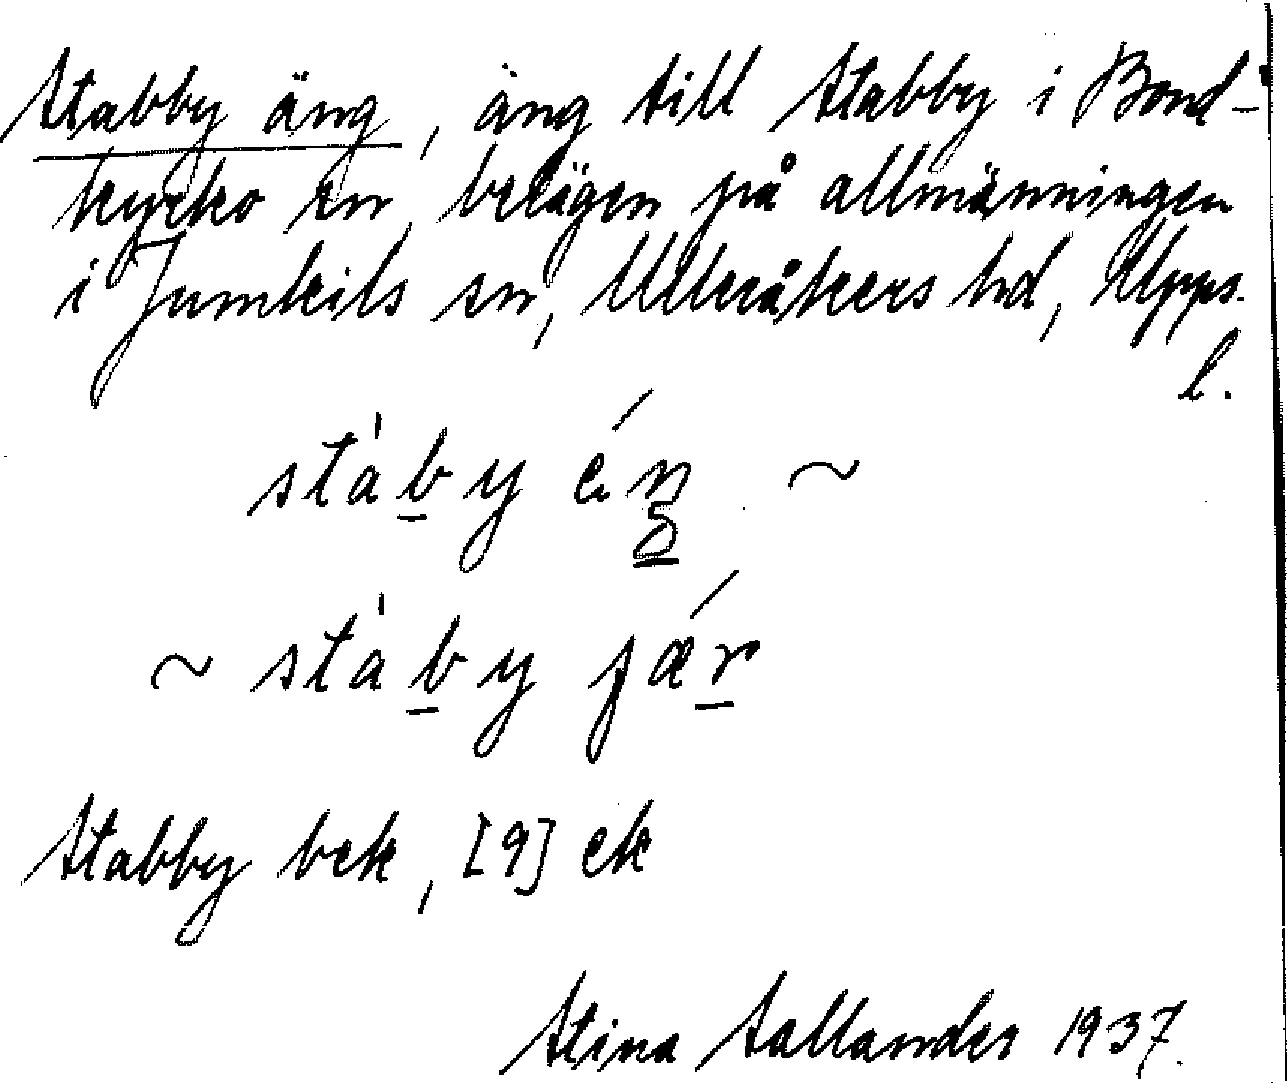 Stabby äng, äng till Stabby i Bond-
kyrko sn, belägen på allmänningen
i Jumkils sn, Ulleråkers hd, Upps.
l.
stàby éŋ ~
~ stàby jǽr
Stabby bek, [9] ek
Stina Sallander 1937.